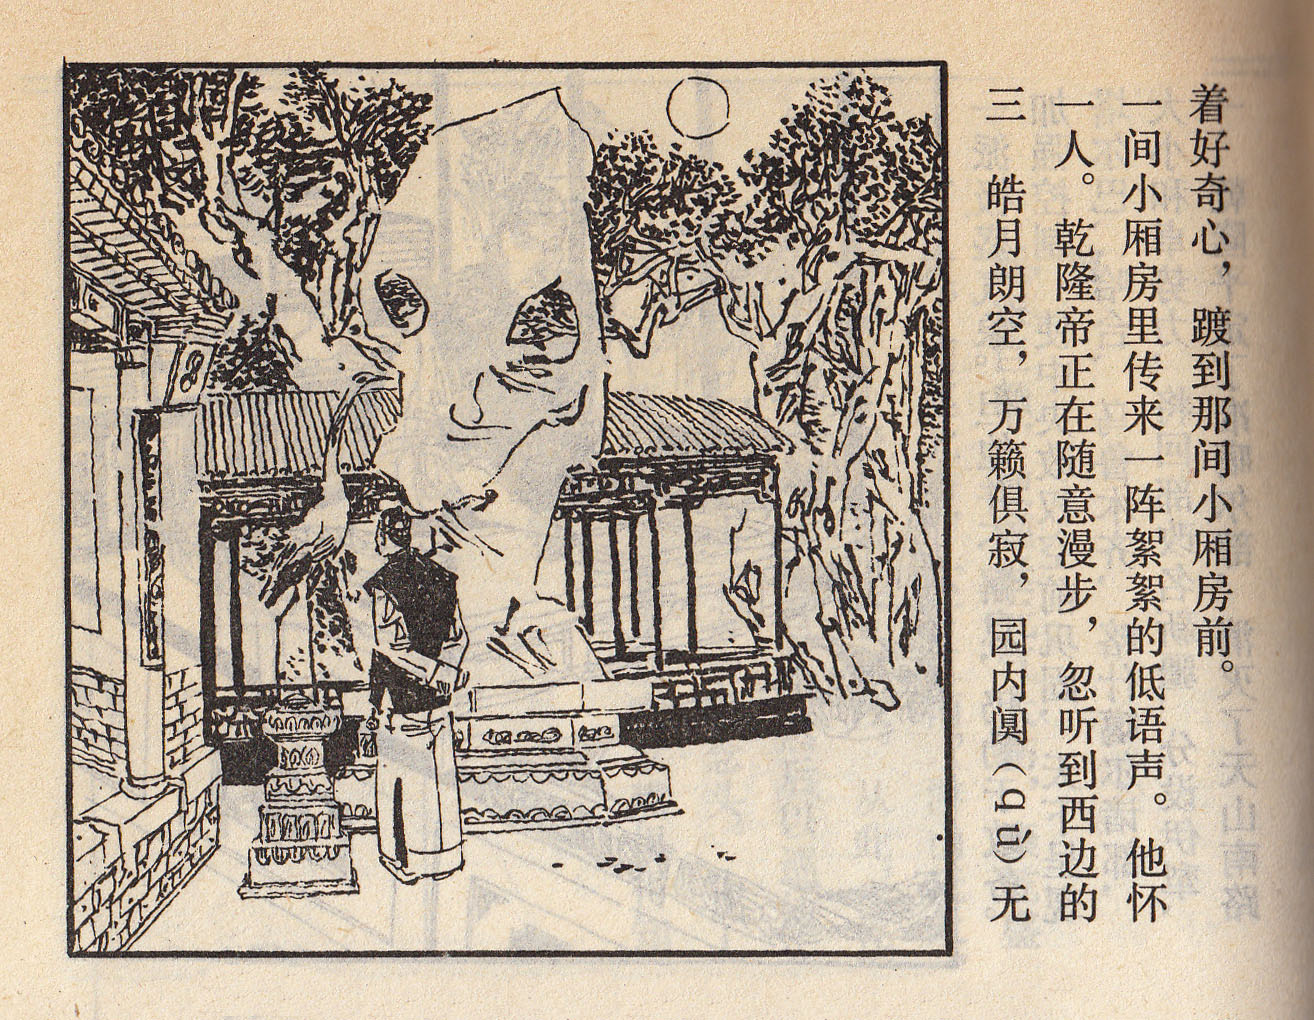 三 皓月朗空，万籁俱寂，园内阒（qù）无
一人。乾隆帝正在随意漫步，忽听到西边的
一间小厢房里传来一阵絮絮的低语声。他怀
着好奇心，踱到那间小厢房前。